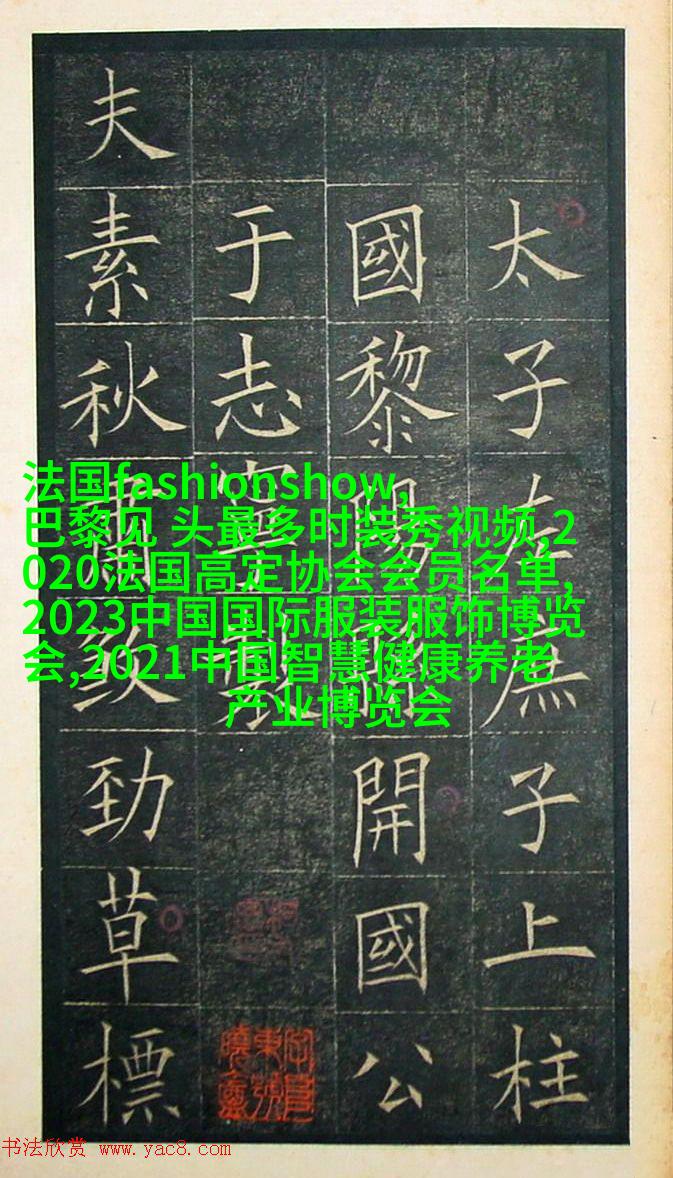 太子左庶子上柱
國黎陽開國公
于志寧製
夫素秋肅勁草標
法国fashionshow,
巴黎见 头最多时装秀视频,2
020法国高定协会会员名单,
2023中国国际服装服饰博览
会,2021中国智慧健康养老
产业博览会
书法欣赏 www.yac8.com